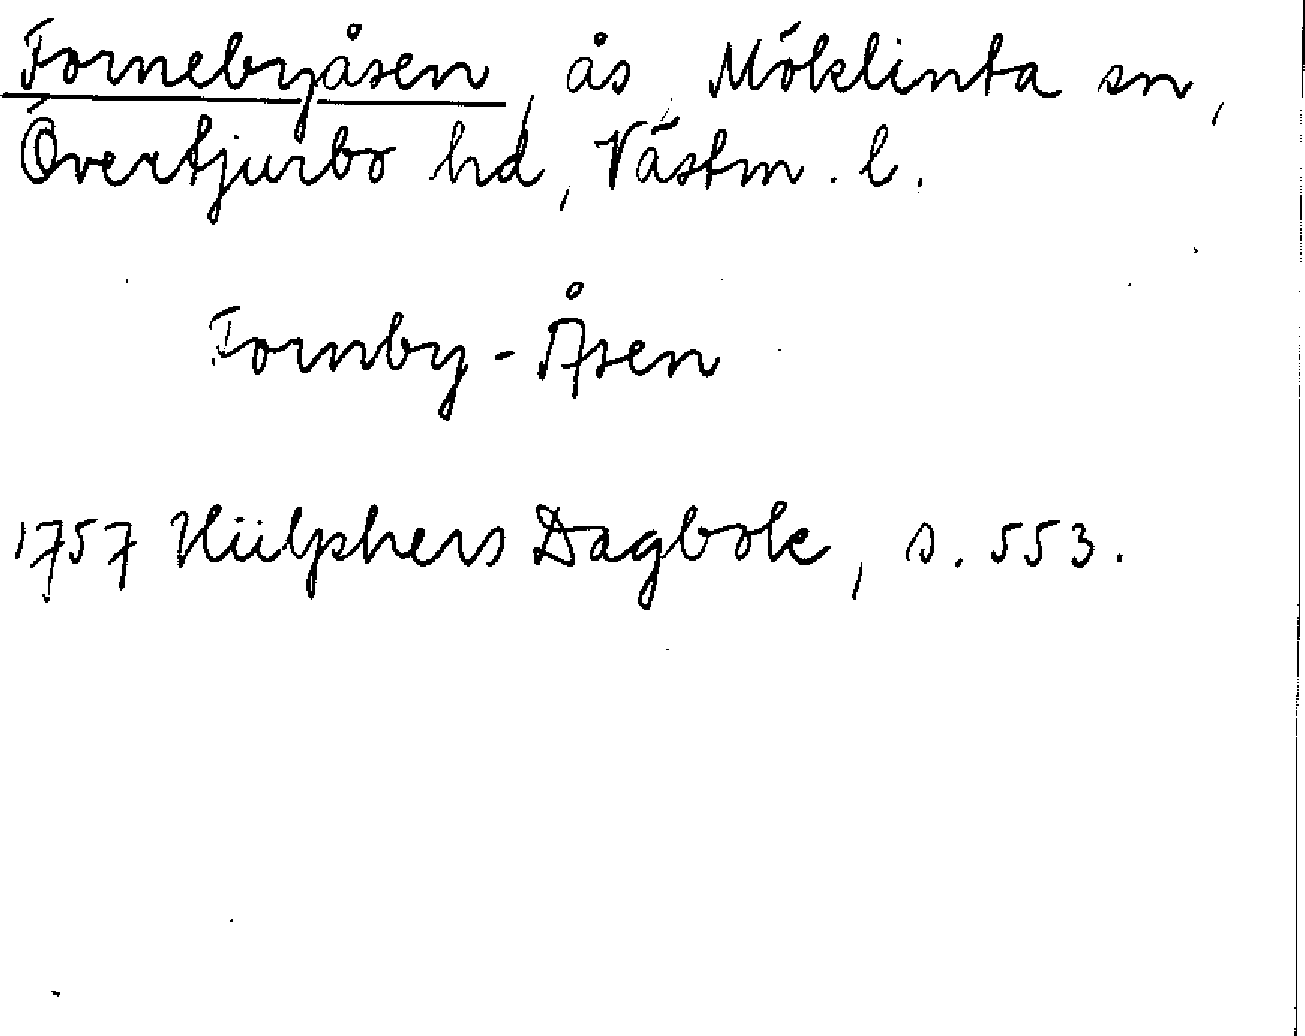 Fornebyåsen, ås, Möklinta sn,
Övertjurbo hd, Västm. l.
Fornby-Åsen
1757 Hülphers Dagbok, s. 553.